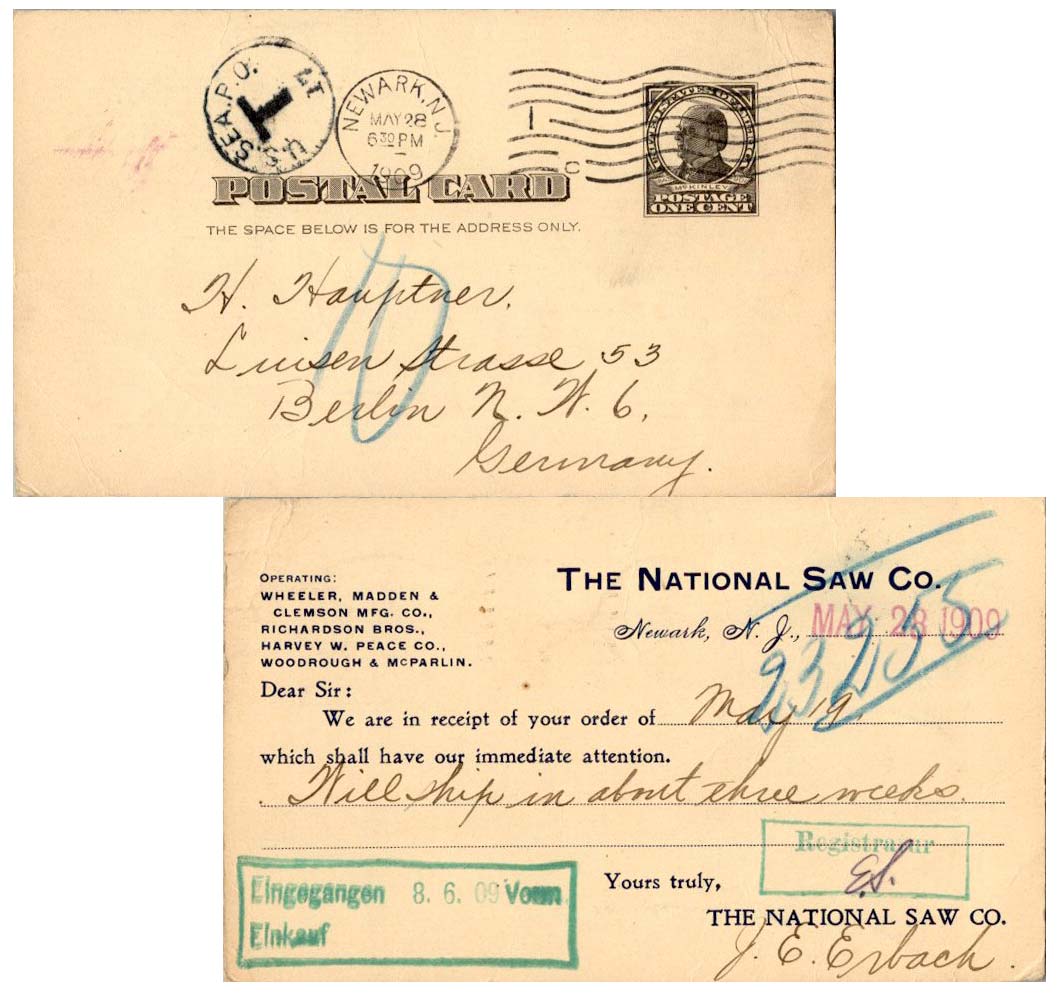 U.S. SEA.P.O. 17
T
NEWARK, N.J.
MAY 28
6 30 PM
1909
1
C
UNITED STATES OF AMERICA
McKINLEY
POSTAGE
ONE CENT
POSTAL CARD
THE SPACE BELOW IS FOR THE ADDRESS ONLY.
10
H. Hauptner.
Luisen Strasse 53
Berlin N. W. 6.
Germany.
OPERATING:
WHEELER, MADDEN &
CLEMSON MFG. CO.,
RICHARDSON BROS.,
HARVEY W. PEACE CO.,
WOODROUGH & McPARLIN.
THE NATIONAL SAW CO.
Newark, N. J., MAY 28 1909
23255
Dear Sir:
We are in receipt of your order of May 19
which shall have our immediate attention.
Will ship in about three weeks.
Registratur
E.S.
Eingegangen 8.6.09 Vorm.
Einkauf
Yours truly,
THE NATIONAL SAW CO.
J. E. Erbach.